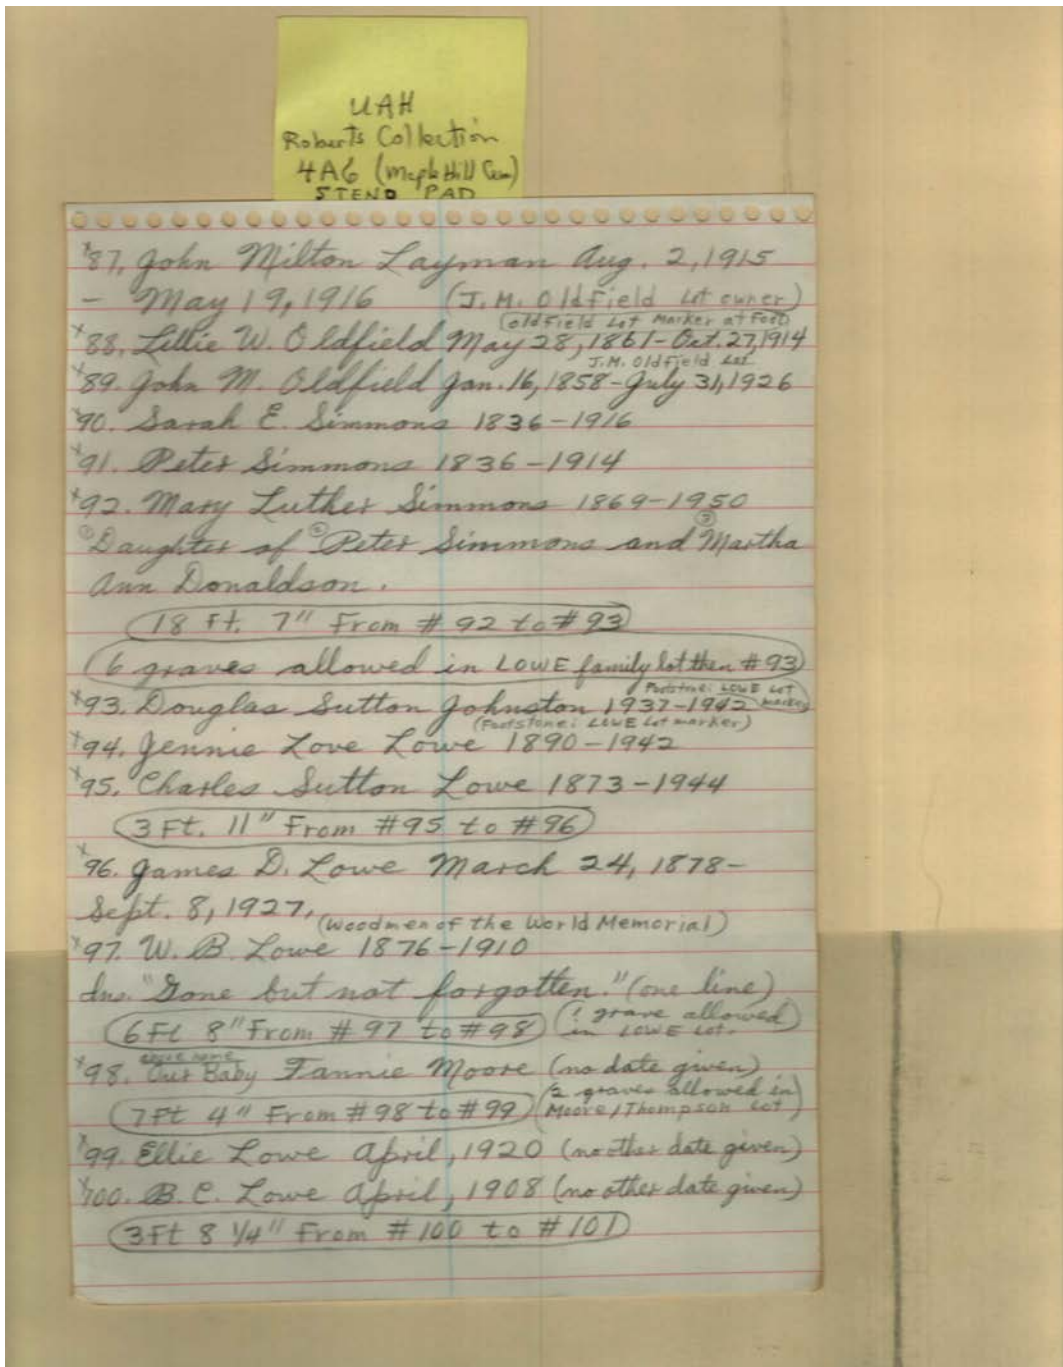 UAH
Roberts Collection
4A6 (Maple Hill Cem)
STENO PAD
x87. John Milton Layman Aug. 2, 1915
- May 19, 1916 (J. M. Oldfield Lot owner)
(Oldfield Lot Marker at Foot)
x88. Lillie W. Oldfield May 28, 1861-Oct. 27, 1914
J.M. Oldfield Lot
x89. John M. Oldfield Jan. 16, 1858-July 31, 1926
x90. Sarah E. Simmons 1836-1916
x91. Peter Simmons 1836-1914
x92. Mary Luther Simmons 1869-1950
① Daughter of ② Peter Simmons and ③ Martha
Ann Donaldson.
18 Ft. 7" From #92 to #93
6 graves allowed in LOWE family lot then #93
Footstone: LOWE Lot marker
x93. Douglas Sutton Johnston 1937-1942
(Footstone: LOWE Lot marker)
x94. Jennie Love Lowe 1890-1942
x95. Charles Sutton Lowe 1873-1944
3 Ft. 11" From #95 to #96
x96. James D. Lowe March 24, 1878-
Sept. 8, 1927.
(Woodmen of the World Memorial)
x97. W. B. Lowe 1876-1910
Ins. "Gone but not forgotten." (one line)
6 Ft 8" From #97 to #98 (1 grave allowed
in LOWE Lot.)
above name
x98. Our Baby Fannie Moore (no date given)
7 Ft 4" From #98 to #99 (2 graves allowed in
Moore/Thompson Lot)
x99. Ellie Lowe April, 1920 (no other date given)
x100. B. C. Lowe April, 1908 (no other date given)
3 Ft 8 1/4" From #100 to #101